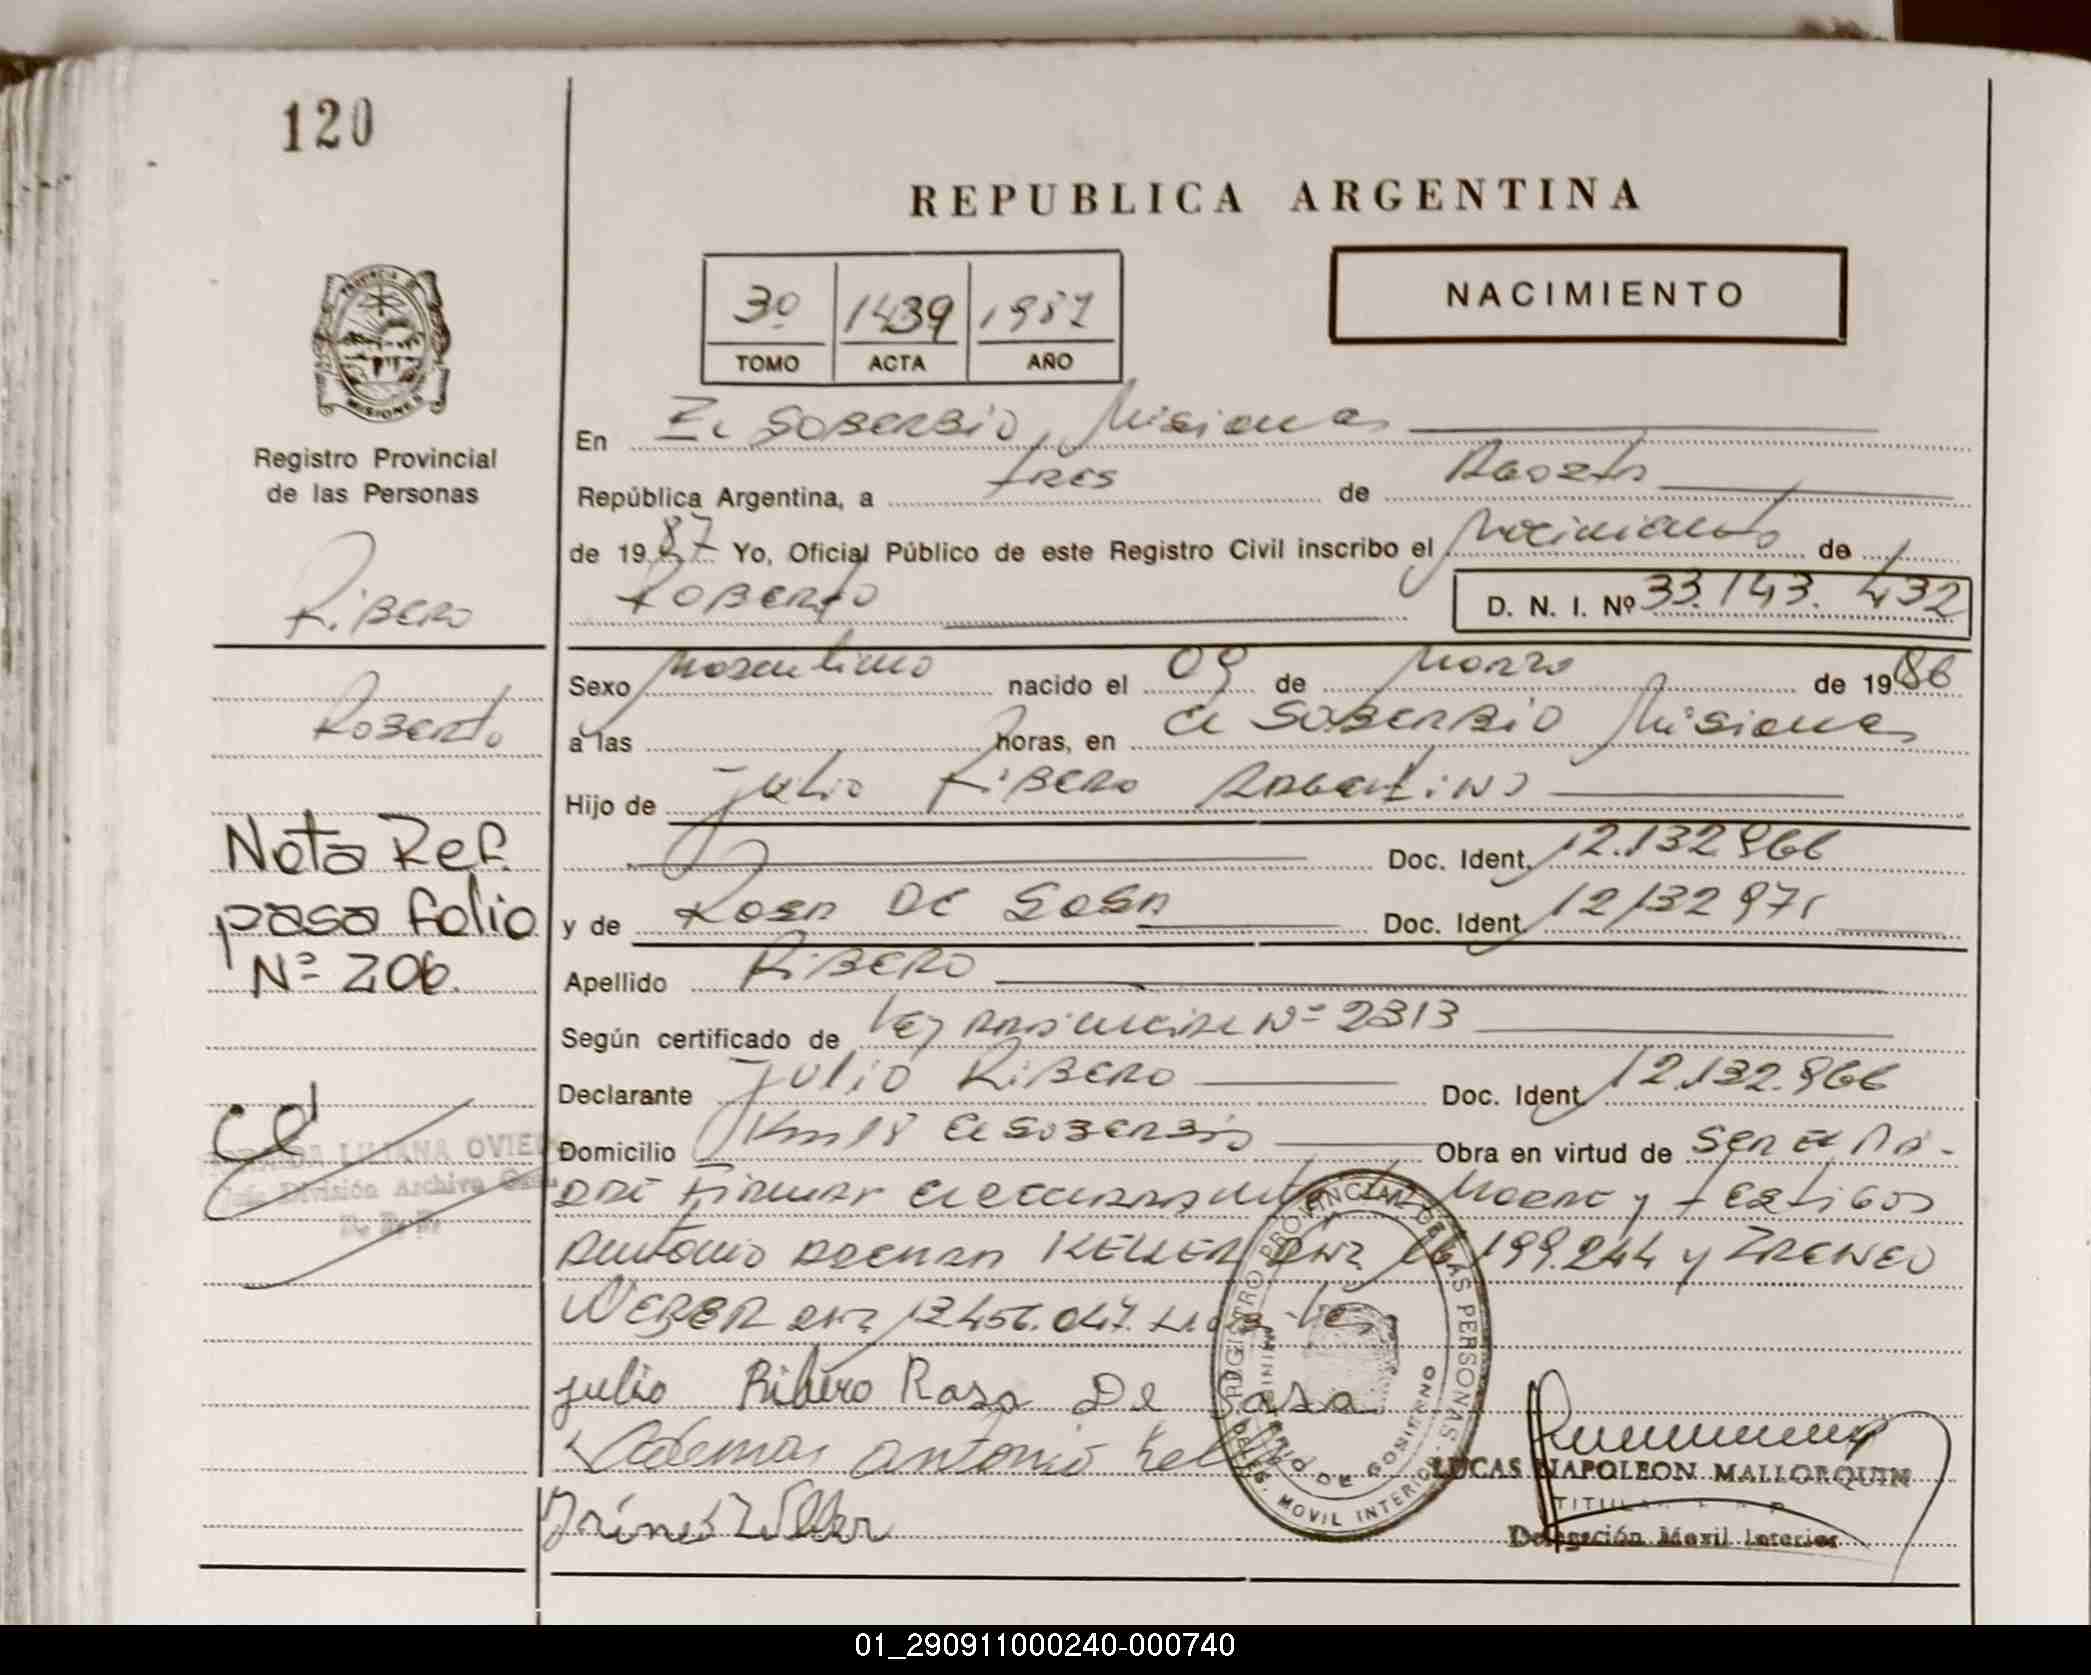 120
REPUBLICA ARGENTINA
3º 1439 1987
TOMO ACTA AÑO
NACIMIENTO
PROVINCIA DE
MISIONES
Registro Provincial
de las Personas
Ribero
Roberto
Nota Ref.
pasa folio
Nº 206.
LILIANA OVIEDO
División Archivo Gral.
En El Soberbio, Misiones
República Argentina, a tres de Agosto
de 1987 Yo, Oficial Público de este Registro Civil inscribo el Nacimiento de
Roberto D. N. I. Nº 33.143.432
Sexo Masculino nacido el 09 de Marzo de 1986
a las horas, en El Soberbio Misiones
Hijo de Julio Ribero Argentino
Doc. Ident. 12.132.966
y de Rosa De Sosa Doc. Ident. 12132971
Apellido Ribero
Según certificado de Ley Provincial Nº 2313
Declarante Julio Ribero Doc. Ident. 12.132.966
Domicilio Km 18 El Soberbio Obra en virtud de Ser El Pa-
dre Firman el declarante Madre y testigos
Antonio Keller DNI 199.244 y Ireneo
Weber DNI 12456.047.
Julio Ribero Rosa De Sosa
Ademar Antonio Kell
REGISTRO PROVINCIAL DE LAS PERSONAS
MINISTERIO DE GOBIERNO
MOVIL INTERIOR
LUCAS NAPOLEON MALLORQUIN
TITULAR
Delegación Movil Interior
01_290911000240-000740